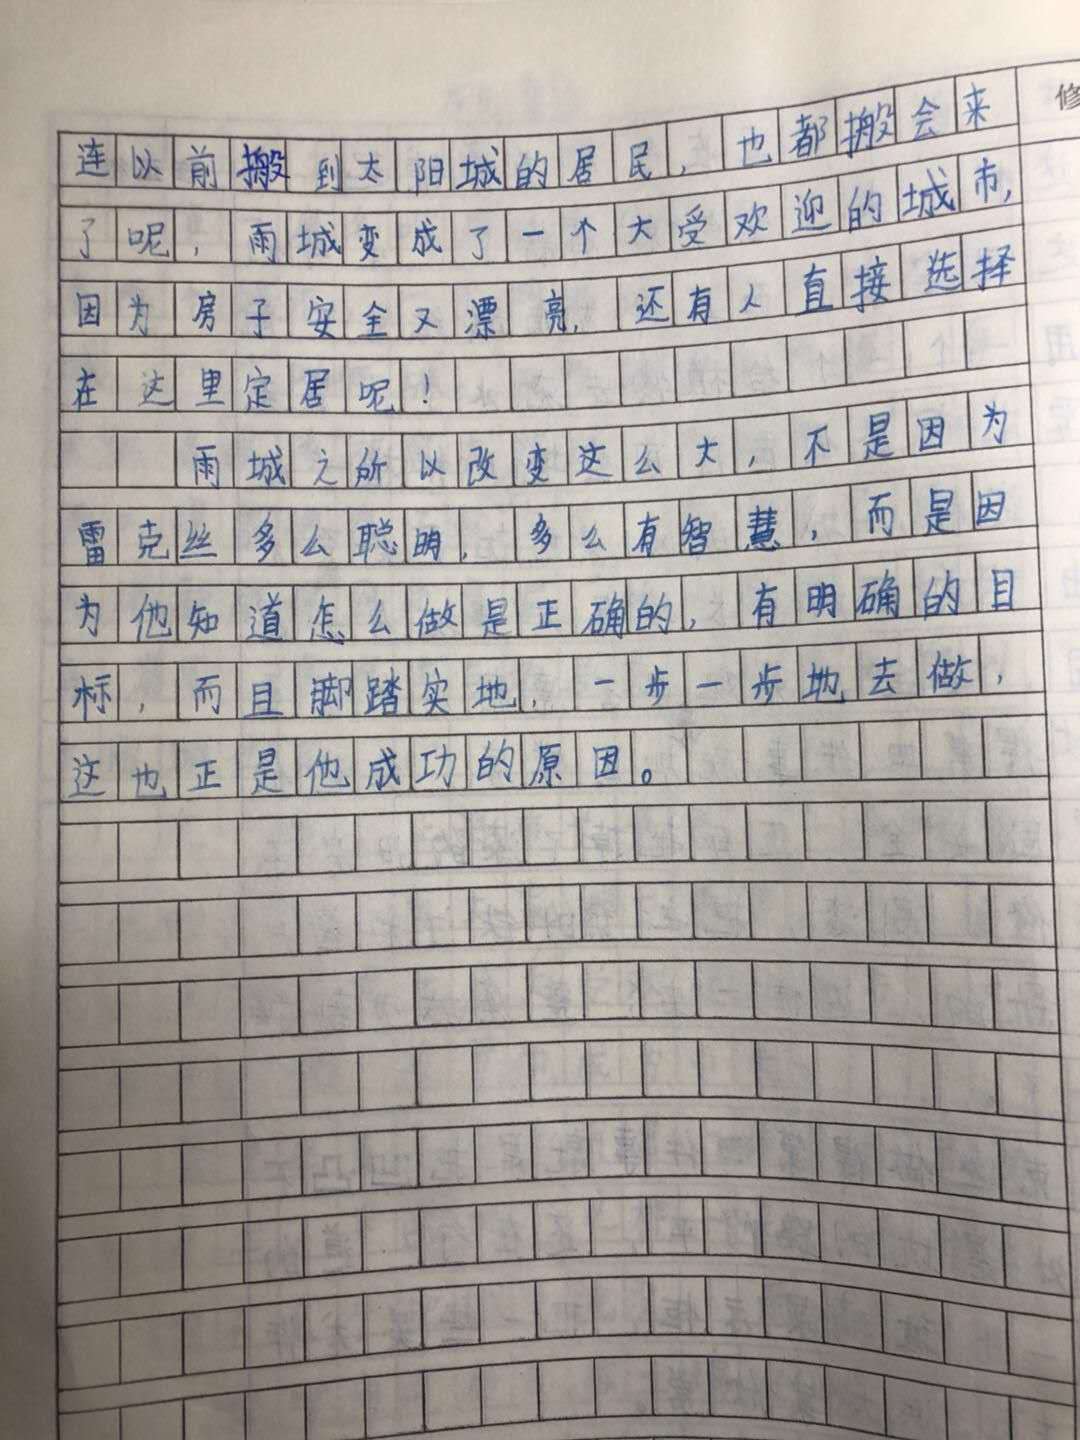 修
连以前搬到太阳城的居民，也都搬会来
了呢，雨城变成了一个大受欢迎的城市，
因为房子安全又漂亮，还有人直接选择
在这里定居呢！
雨城之所以改变这么大，不是因为
雷克丝多么聪明，多么有智慧，而是因
为他知道怎么做是正确的，有明确的目
标，而且脚踏实地，一步一步地去做，
这也正是他成功的原因。